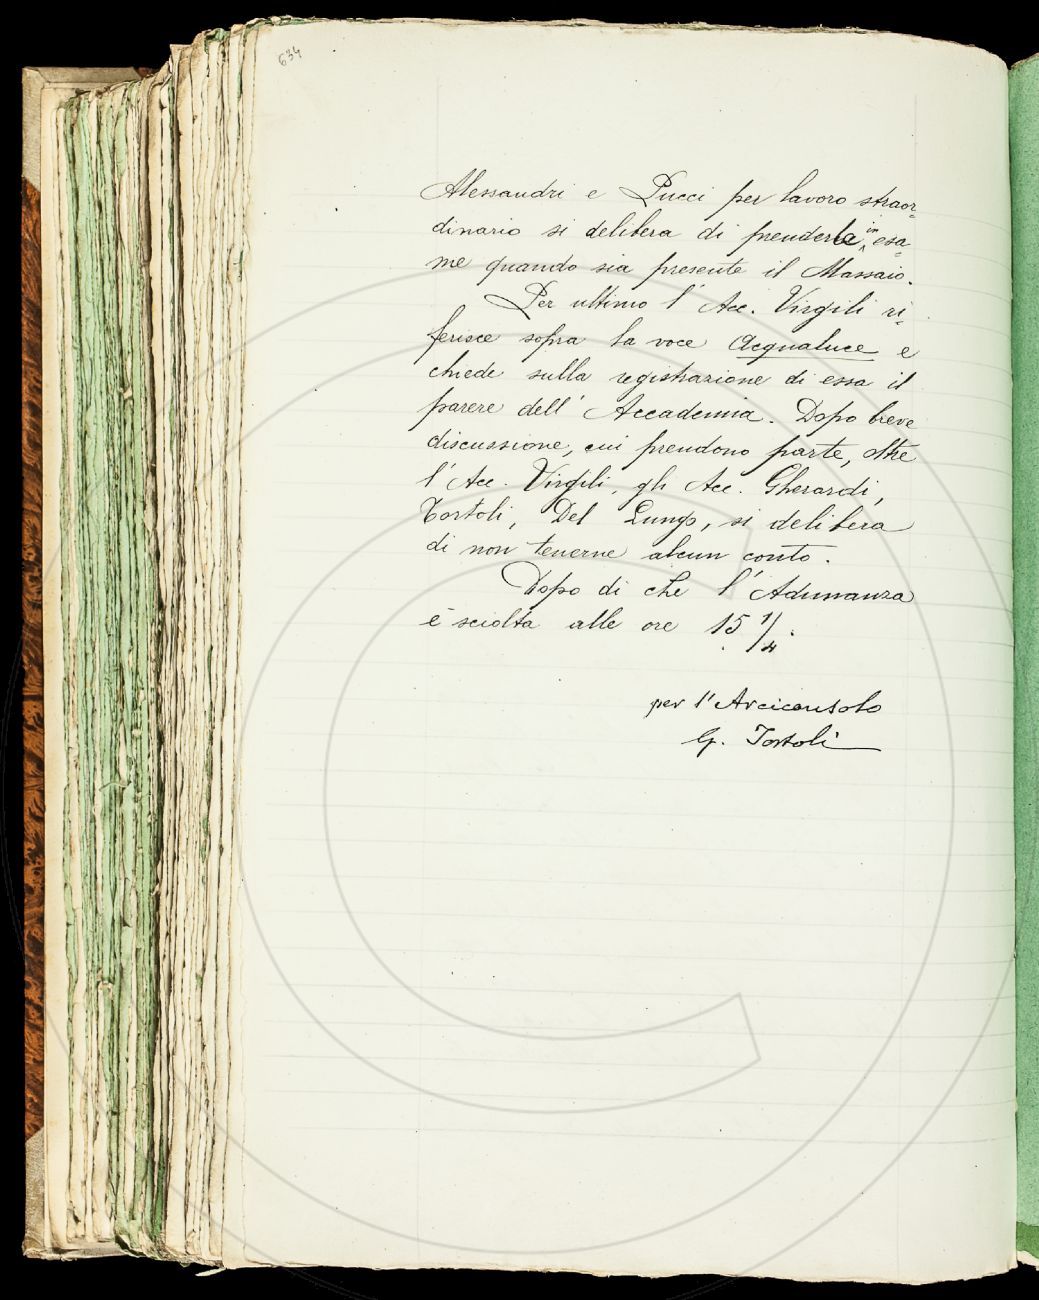 634
Alessandri e Pucci per lavoro straor=
dinario si delibera di prenderla in esa=
me quando sia presente il Massaio.
Per ultimo l'Acc. Virgili ri=
ferisce sopra la voce Acqualuce e
chiede sulla registrazione di essa il
parere dell'Accademia. Dopo breve
discussione, cui prendono parte, oltre
l'Acc. Virgili, gli Acc. Gherardi,
Tortoli, Del Lungo, si delibera
di non tenerne alcun conto.
Dopo di che l'Adunanza
è sciolta alle ore 15 1/4.
per l'Arciconsolo
G. Tortoli